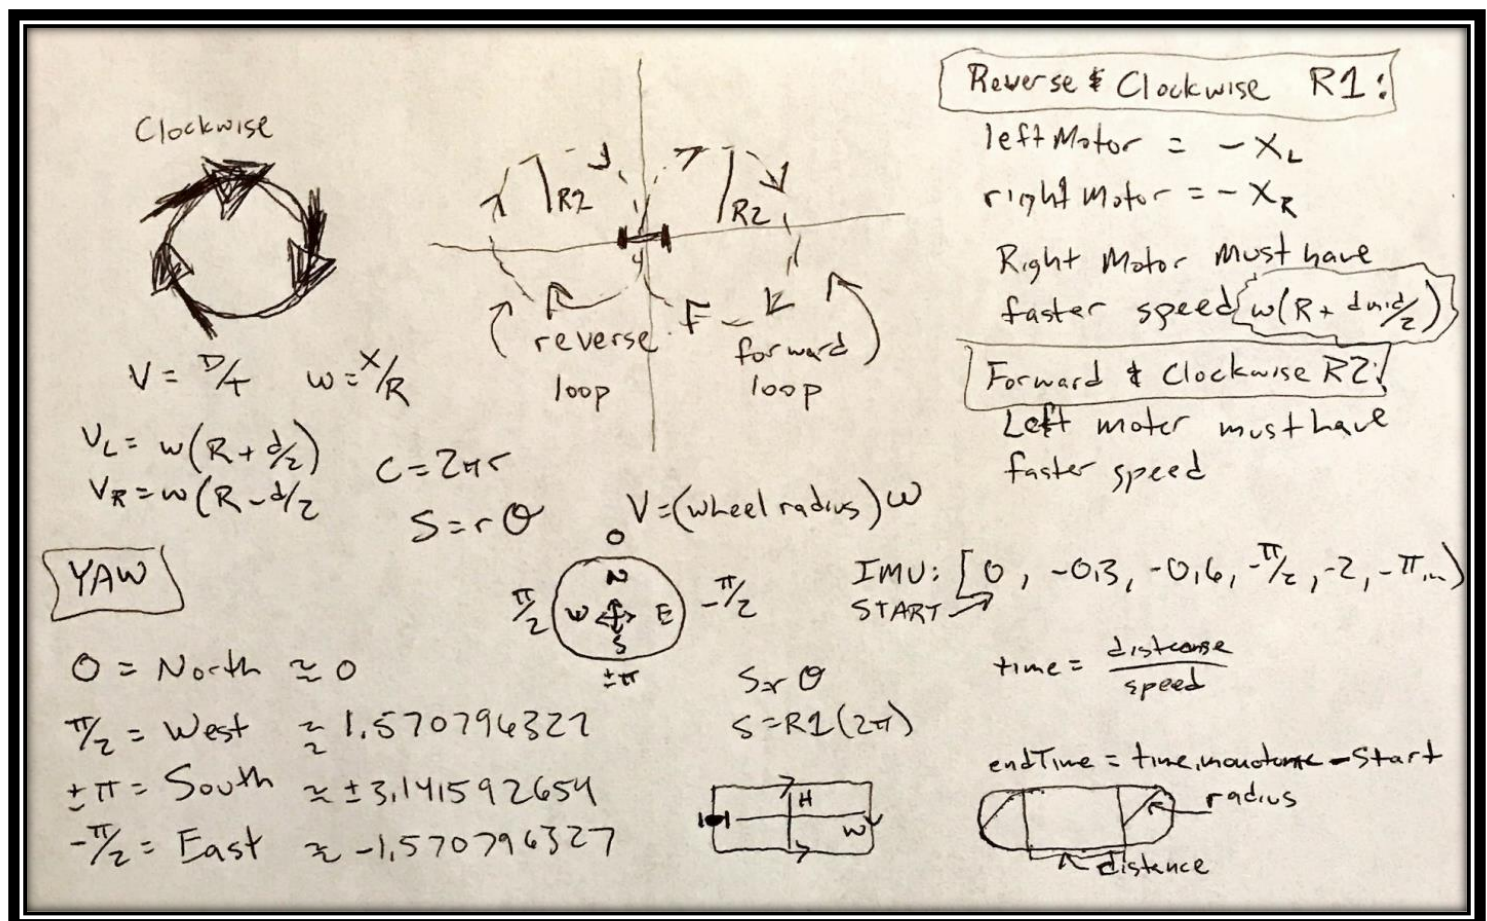 Clockwise
V = D/T   w = X/R
V_L = w(R + d/2)
V_R = w(R - d/2
C = 2πr
S = rθ
R2
R2
reverse
loop
F
forward
loop
Reverse & Clockwise R1:
left Motor = - X_L
right Motor = - X_R
Right Motor Must have
faster speed w(R + dmid/2)
Forward & Clockwise R2:
Left moter must have
faster speed
V = (wheel radius) ω
YAW
0 = North ≈ 0
π/2 = West ≈ 1.570796327
±π = South ≈ ±3.141592654
-π/2 = East ≈ -1.570796327
0
N
π/2 W E -π/2
S
±π
IMU: [0, -0.3, -0.6, -π/2, -2, -π...)
START
S=rθ
S = R1(2π)
time = distance/speed
endTime = time.monotonic - Start
H
W
radius
distance